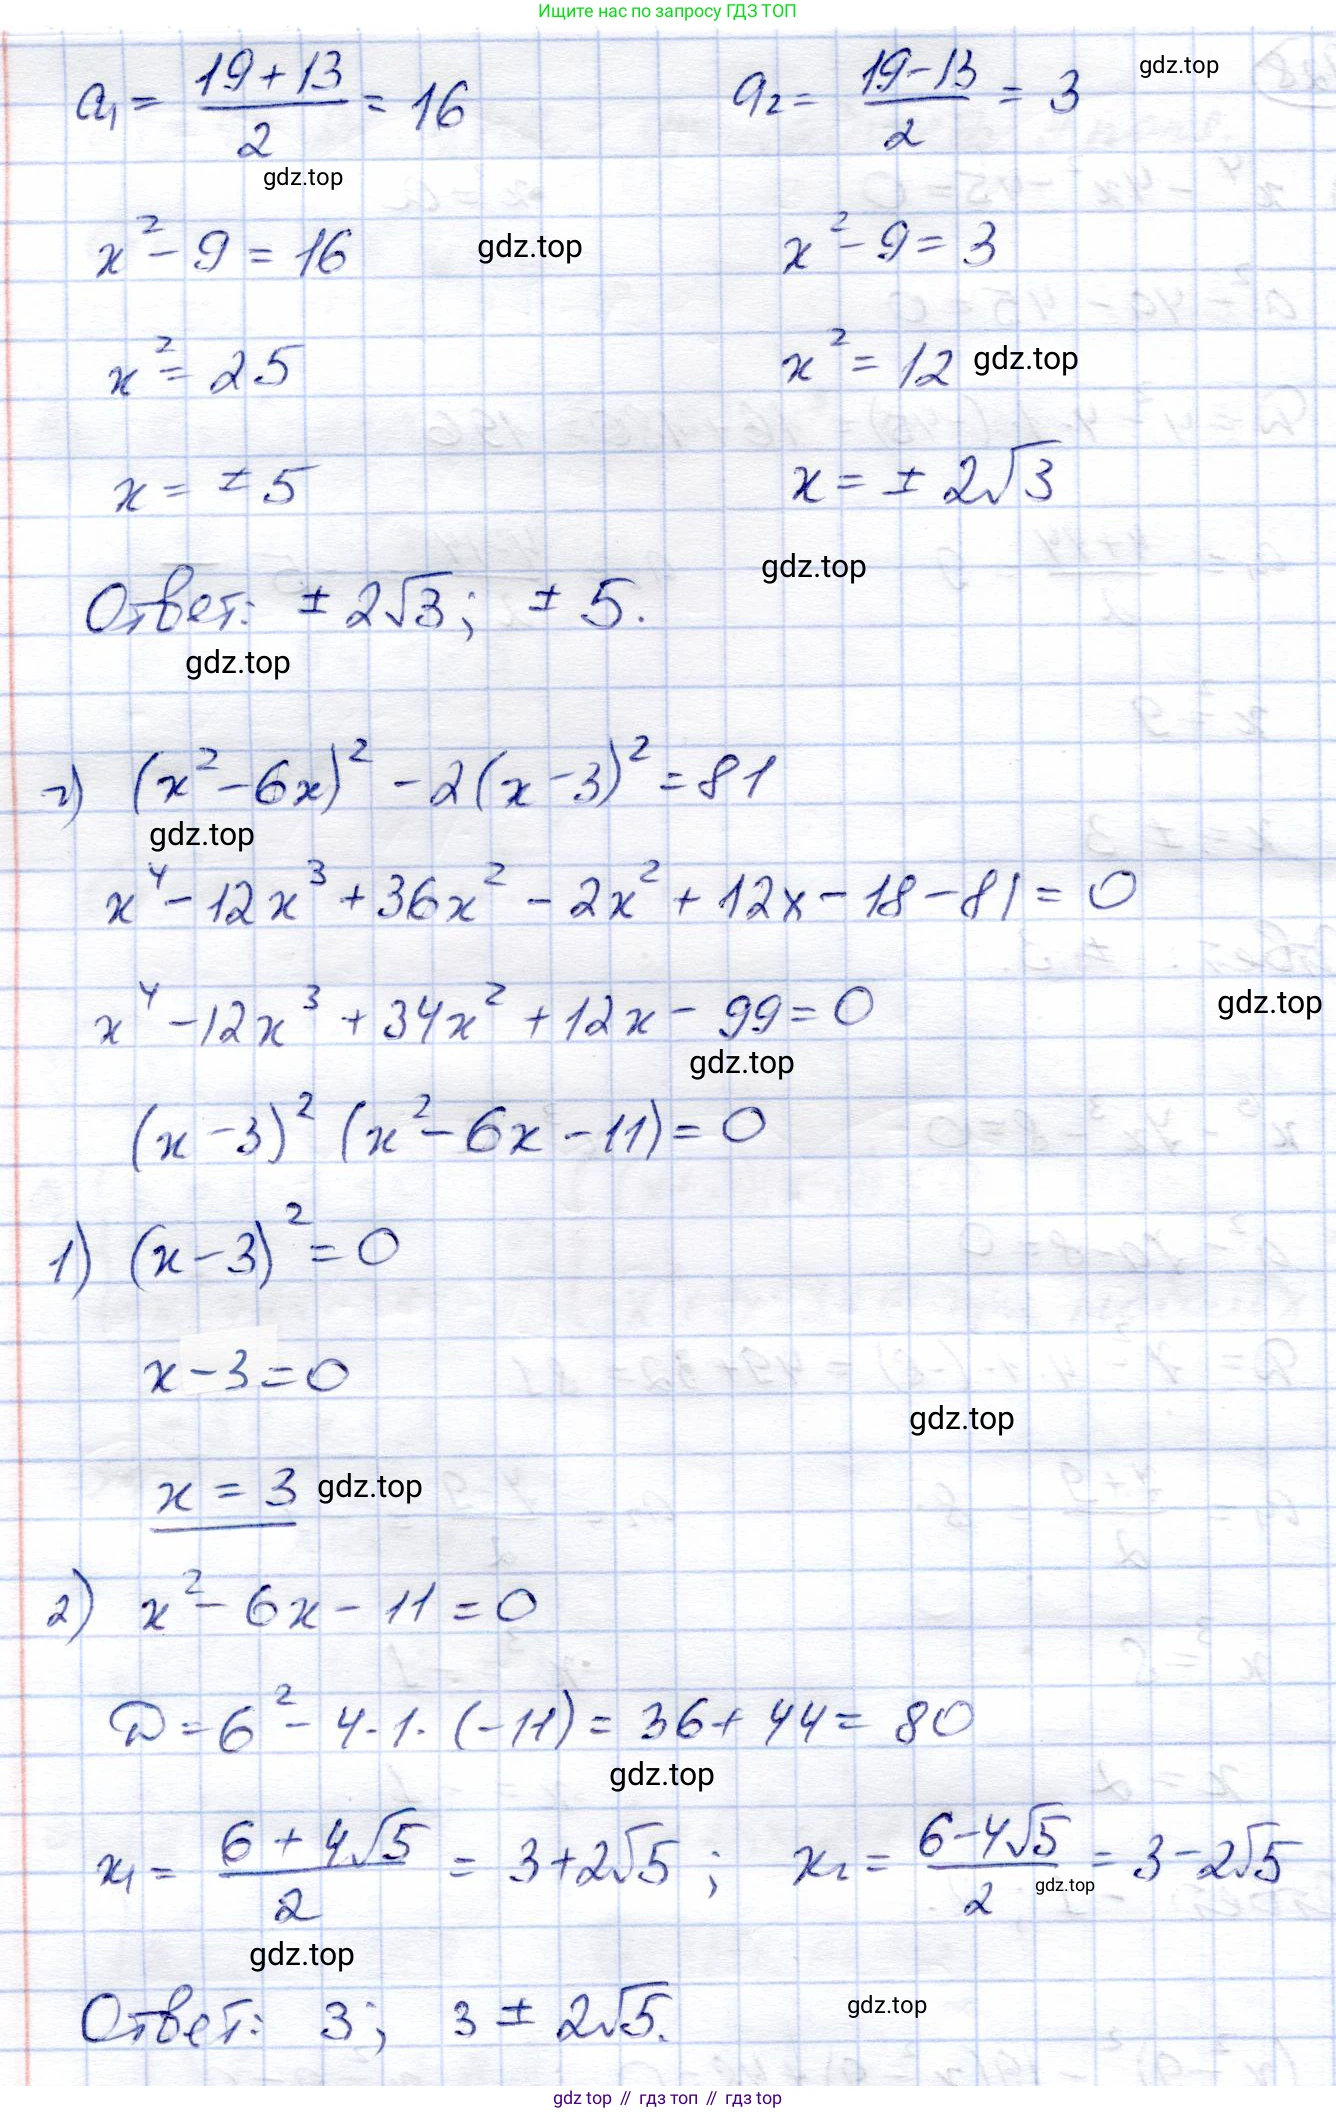 Ищите нас по запросу ГДЗ ТОП
a₁ = (19 + 13)/2 = 16
a₂ = (19 - 13)/2 = 3
gdz.top
gdz.top
x² - 9 = 16
gdz.top
x² - 9 = 3
x² = 25
x² = 12
gdz.top
x = ± 5
x = ± 2√3
gdz.top
Ответ: ± 2√3; ± 5.
gdz.top
г) (x² - 6x)² - 2(x - 3)² = 81
gdz.top
x⁴ - 12x³ + 36x² - 2x² + 12x - 18 - 81 = 0
x⁴ - 12x³ + 34x² + 12x - 99 = 0
gdz.top
gdz.top
(x - 3)² (x² - 6x - 11) = 0
1) (x - 3)² = 0
x - 3 = 0
gdz.top
x = 3
gdz.top
2) x² - 6x - 11 = 0
D = 6² - 4 · 1 · (-11) = 36 + 44 = 80
gdz.top
x₁ = (6 + 4√5)/2 = 3 + 2√5 ; x₂ = (6 - 4√5)/2 = 3 - 2√5
gdz.top
gdz.top
Ответ: 3; 3 ± 2√5.
gdz.top
gdz top // гдз топ // гдз top